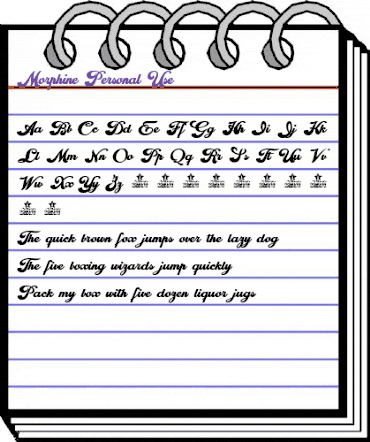 Morphine Personal Use
Aa Bb Cc Dd Ee Ff Gg Hh Ii Jj Kk
Ll Mm Nn Oo Pp Qq Rr Ss Tt Uu Vv
Ww Xx Yy Zz
The quick brown fox jumps over the lazy dog
The five boxing wizards jump quickly
Pack my box with five dozen liquor jugs